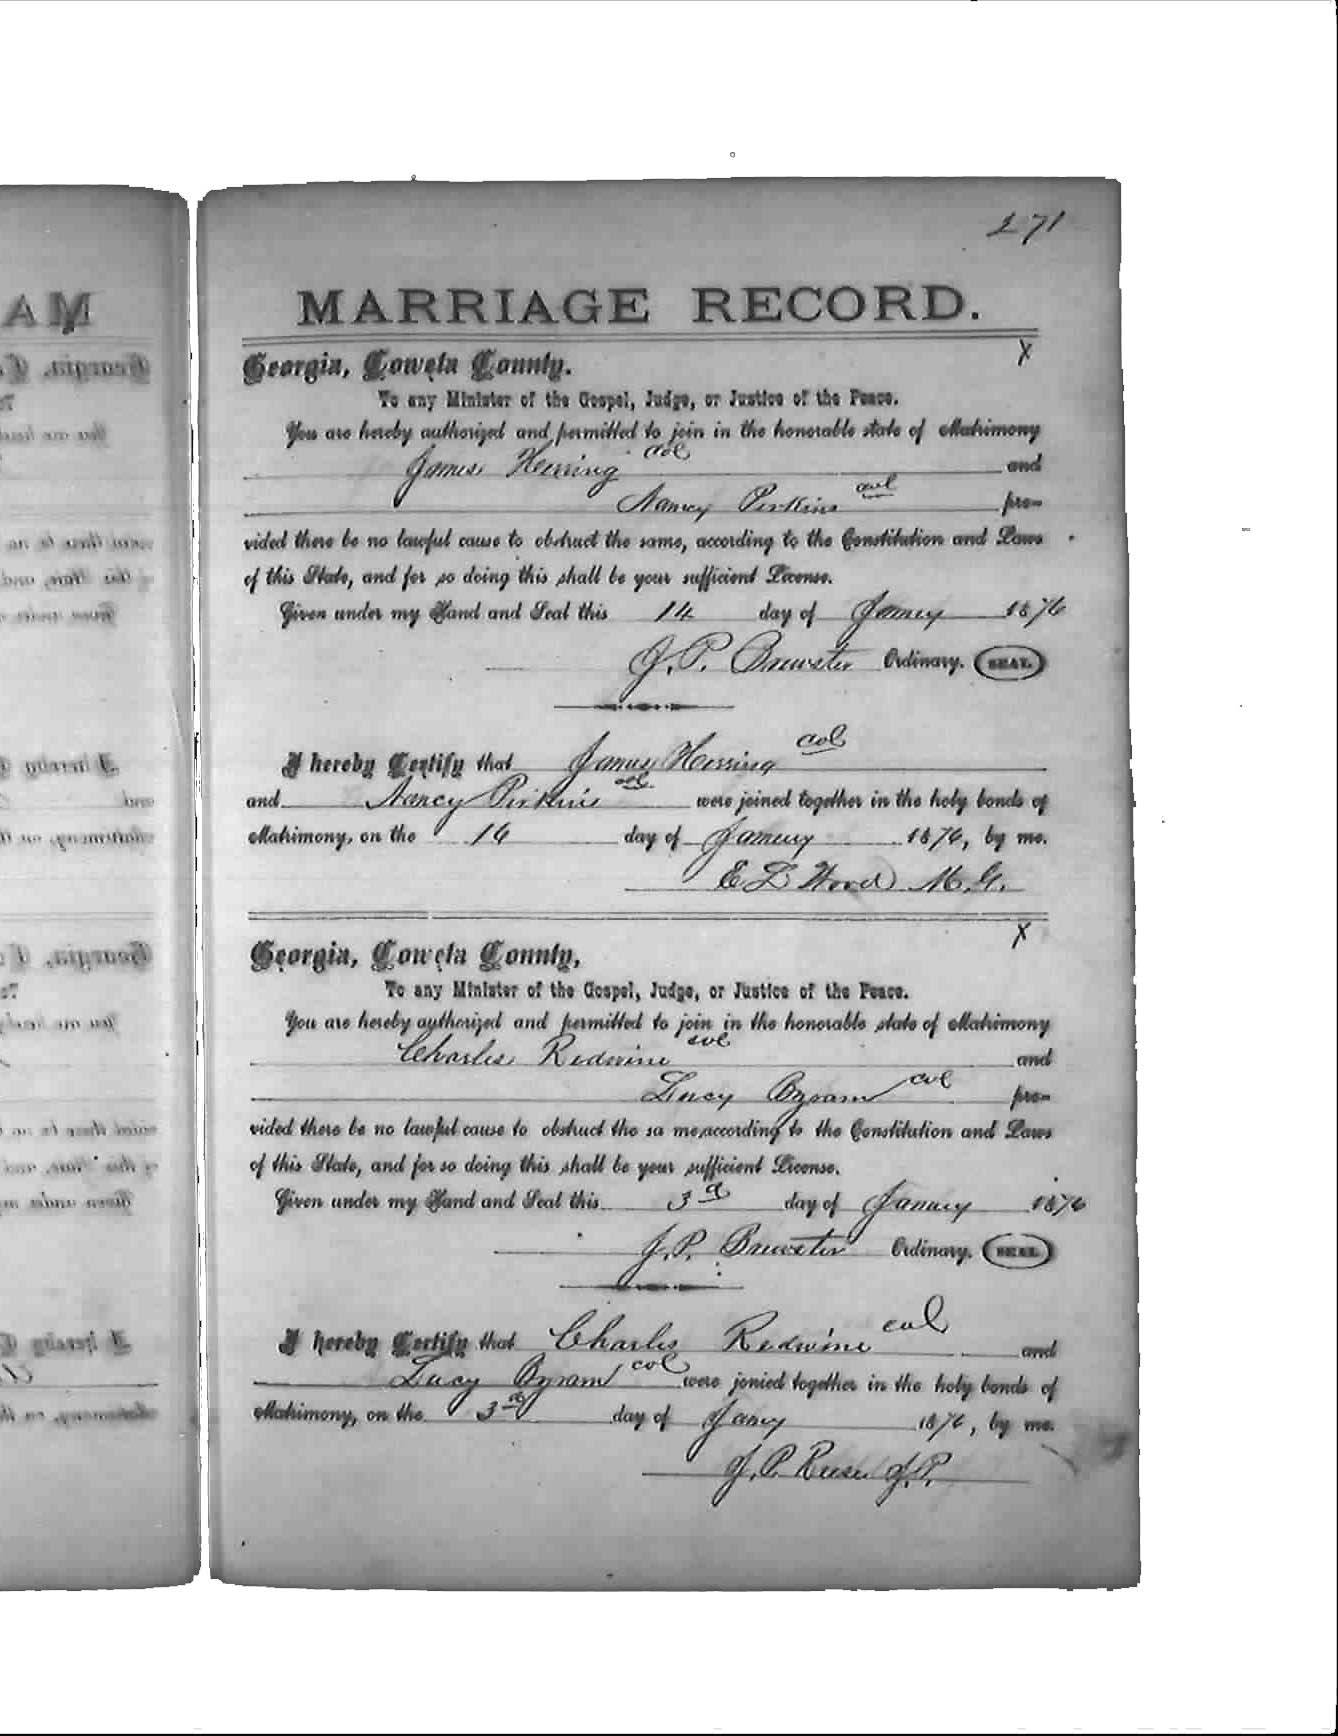 271
MARRIAGE RECORD.
X
Georgia, Coweta County.
To any Minister of the Gospel, Judge, or Justice of the Peace.
You are hereby authorized and permitted to join in the honorable state of Matrimony
James Herring col and
Nancy Perkins col pro-
vided there be no lawful cause to obstruct the same, according to the Constitution and Laws
of this State, and for so doing this shall be your sufficient License.
Given under my Hand and Seal this 14 day of Janury 1876
J. P. Brewster Ordinary. SEAL.
I hereby Certify that James Herring col
and Nancy Perkins col were joined together in the holy bonds of
Matrimony, on the 16 day of Janury 1876, by me.
E L Wood M. G.
X
Georgia, Coweta County,
To any Minister of the Gospel, Judge, or Justice of the Peace.
You are hereby authorized and permitted to join in the honorable state of Matrimony
Charles Redwine col and
Lucy Byram col pro-
vided there be no lawful cause to obstruct the sa me, according to the Constitution and Laws
of this State, and for so doing this shall be your sufficient License.
Given under my Hand and Seal this 3d day of Janury 1876
J. P. Brewster Ordinary. SEAL
I hereby Certify that Charles Redwine col and
Lucy Byram col were jonied together in the holy bonds of
Matrimony, on the 3d day of Jany 1876, by me.
J. P. Reese J. P.